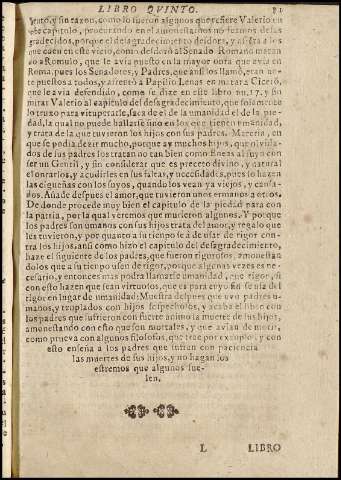 LIBRO QVINTO. 81
uento, y sin razon, como lo fueron algunos que refiere Valerio en
este capitulo, procurando en el amonestarnos no seamos desa
gradecidos, porque el desagradecimiento
que caen en este vicio, como del
a Romulo, que le auia puesto en la mayor onra que auia en
Roma, pues los Senadores, y Padres, que ansi los llamò, eran
puestos a todos, y afrentò a Papilio Lenas en matar a Cicerō,
que le auia defendido, como se dize en este libro nu. 17. y si
mirays Valerio al capitulo del desagradecimiento, que solamente
lo truxo para vituperarle, saca de el la vmanidad el de la pie-
dad, la qual no puede hallarse sino en los que tienen vmanidad,
y trata de la que tuuieron los hijos con sus padres. Materia, en
que se podia dezir mucho, porque ay muchos hijos, que oluida-
dos de sus padres los tratan no tan bien como Eneas al suyo con
ser vn Gentil, y sin considerar que es preceto diuino, y natural
el onrarlos, y acudirles en sus faltas, y necessidades, pues lo hazen
las cigueñas con los suyos, quando los vean ya viejos, y cansa-
dos. Añade despues el amor, que tuuieron vnos ermanos a otros.
De donde procede muy bien el capitulo de la piedad para con
la patria, por la qual veremos que murieron algunos. Y porque
los padres son vmanos con sus hijos trata del amor, y regalo que
les tuuieron, y por quanto a su tiempo se à de vsar de rigor con-
tra los hijos, ansi como hizo el capitulo del desagradecimiento,
haze el siguiente de los padres, que fueron rigurosos, amonestan
dolos que a su tiempo vsen de rigor, porque algunas vezes es ne-
cesario, y entonces mas podra llamarse vmanidad, que rigor, si
con esto hazen que sean virtuosos, que es para em yo fin se vsa del
rigor en lugar de vmanidad: Muestra despues que vuo padres v-
manos, y templados con hijos sospechosos, y acaba el libro con
los padres que sufrieron con fuerte animo la muerte de sus hijos,
amonestando con esto que son mortales, y que auian de morir,
como prueua con algunos filosofos, que trae por exemplo, y con
esto enseña a los padres que sufran con paciencia
las muertes de sus hijos, y no hagan los
estremos que algunos sue-
len.
L LIBRO